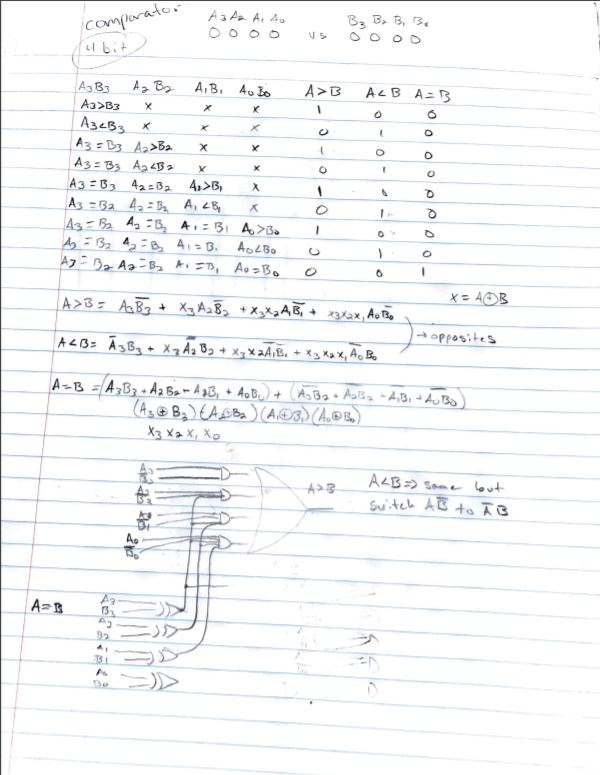 comparator A3 A2 A1 A0 B3 B2 B1 B0
4 bit 0 0 0 0 vs 0 0 0 0
A3B3 A2B2 A1B1 A0B0 A>B A<B A=B
A3>B3 x x x 1 0 0
A3<B3 x x x 0 1 0
A3=B3 A2>B2 x x 1 0 0
A3=B3 A2<B2 x x 0 1 0
A3=B3 A2=B2 A1>B1 x 1 1 0
A3=B2 A2=B2 A1<B1 x 0 1 0
A3=B2 A2=B2 A1=B1 A0>B0 1 0 0
A2=B2 A2=B2 A1=B1 A0<B0 0 1 0
A3=B2 A2=B2 A1=B1 A0=B0 0 0 1
x = A⊕B
A>B = A3B̅3 + x3A2B̅2 + x3x2A1B̅1 + x3x2x1A0B̅0
→ opposites
A<B = A̅3B3 + x3A̅2B2 + x3x2A̅1B1 + x3x2x1A̅0B0
A=B =(A3B3 + A2B2 - A2B1 + A0B0) + (A̅3B̅2 + A̅2B̅2 + A̅1B̅1 + A̅0B̅0)
(A3⊕B3)(A2⊕B2)(A1⊕B1)(A0⊕B0)
x3 x2 x1 x0
A3
B̅3
A2
B̅2
A>B A<B ⇒ same but
switch AB̅ to A̅B
B̅1
A0
B̅0
A=B A3
B3
A2
B2
A1
B1
A0
B0